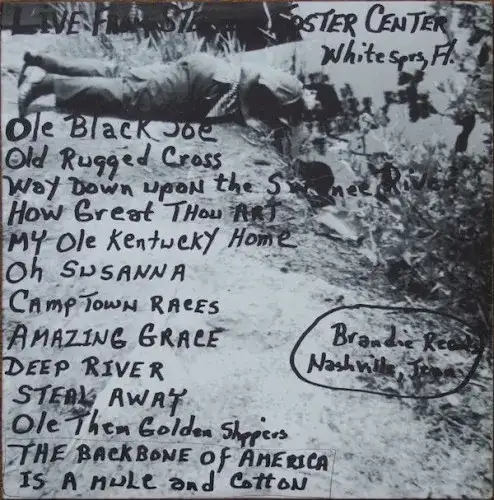 LIVE FROM STE OSTER CENTER
Whitesprs, Fl.
Ole Black Joe
Old Rugged Cross
Way Down upon the Swanee River
How Great Thou Art
My Ole Kentucky Home
Oh SUSANNA
CAMPTOWN RACES
AMAZING GRACE
DEEP RIVER
STEAL AWAY
Ole Them Golden Slippers
THE BACKBONE OF AMERICA
IS A MULE and COTTON
Brandie Records
Nashville, Tenn.